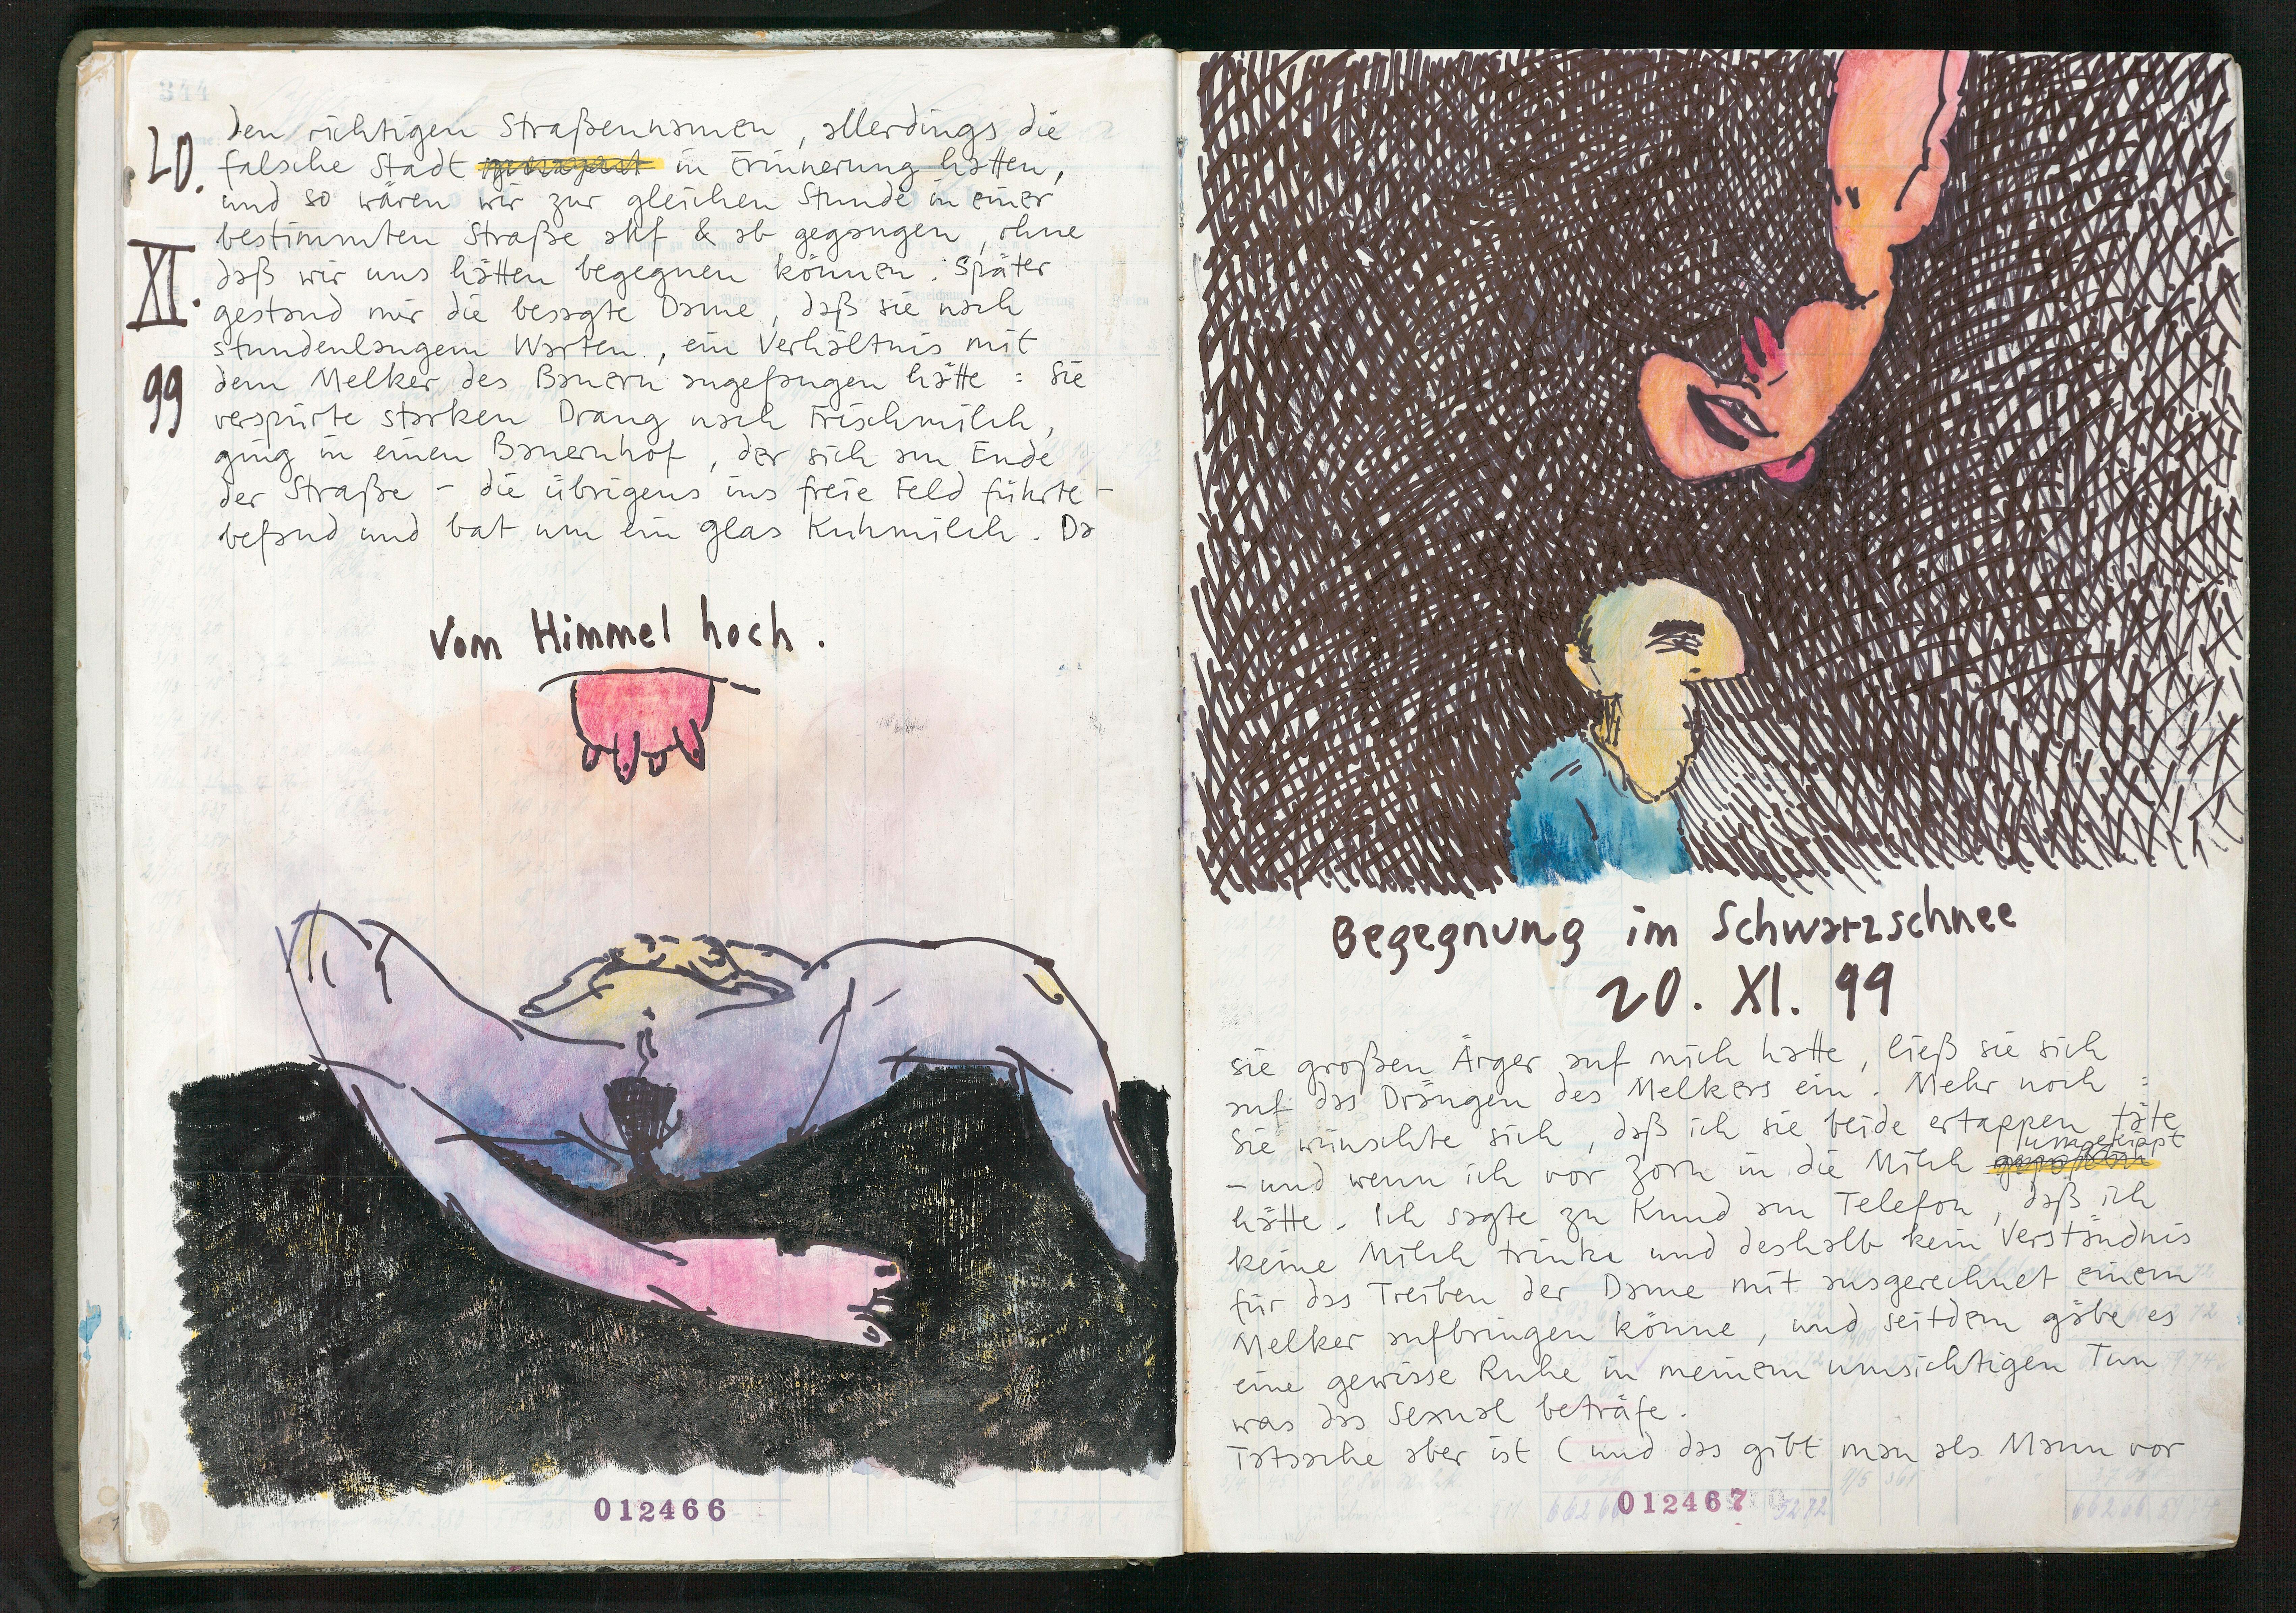 344
20.
XI.
99
den richtigen Straßennamen, allerdings die
falsche Stadt in Erinnerung hatten,
und so wären wir zur gleichen Stunde in einer
bestimmten Straße auf & ab gegangen, ohne
daß wir uns hätten begegnen können. Später
gestand mir die besagte Dame, daß sie nach
stundenlangem Warten, ein Verhältnis mit
dem Melker des Bauern angefangen hätte: Sie
verspürte starken Drang nach Frischmilch,
ging in einen Bauernhof, der sich am Ende
der Straße – die übrigens ins freie Feld führte –
befand und bat um ein Glas Kuhmilch. Da
Vom Himmel hoch.
012466
Begegnung im Schwarzschnee
20. XI. 99
sie großen Ärger auf mich hatte, ließ sie sich
auf das Drängen des Melkers ein. Mehr noch:
Sie wünschte sich, daß ich sie beide ertappen täte
– und wenn ich vor Zorn in die Milch umgekippt
hätte. Ich sagte zu Knud am Telefon, daß ich
keine Milch trinke und deshalb kein Verständnis
für das Treiben der Dame mit ausgerechnet einem
Melker aufbringen könne, und seitdem gäbe es
eine gewisse Ruhe in meinem umsichtigen Tun
was das Sexual beträfe.
Tatsache aber ist (und das gibt man als Mann vor
012467